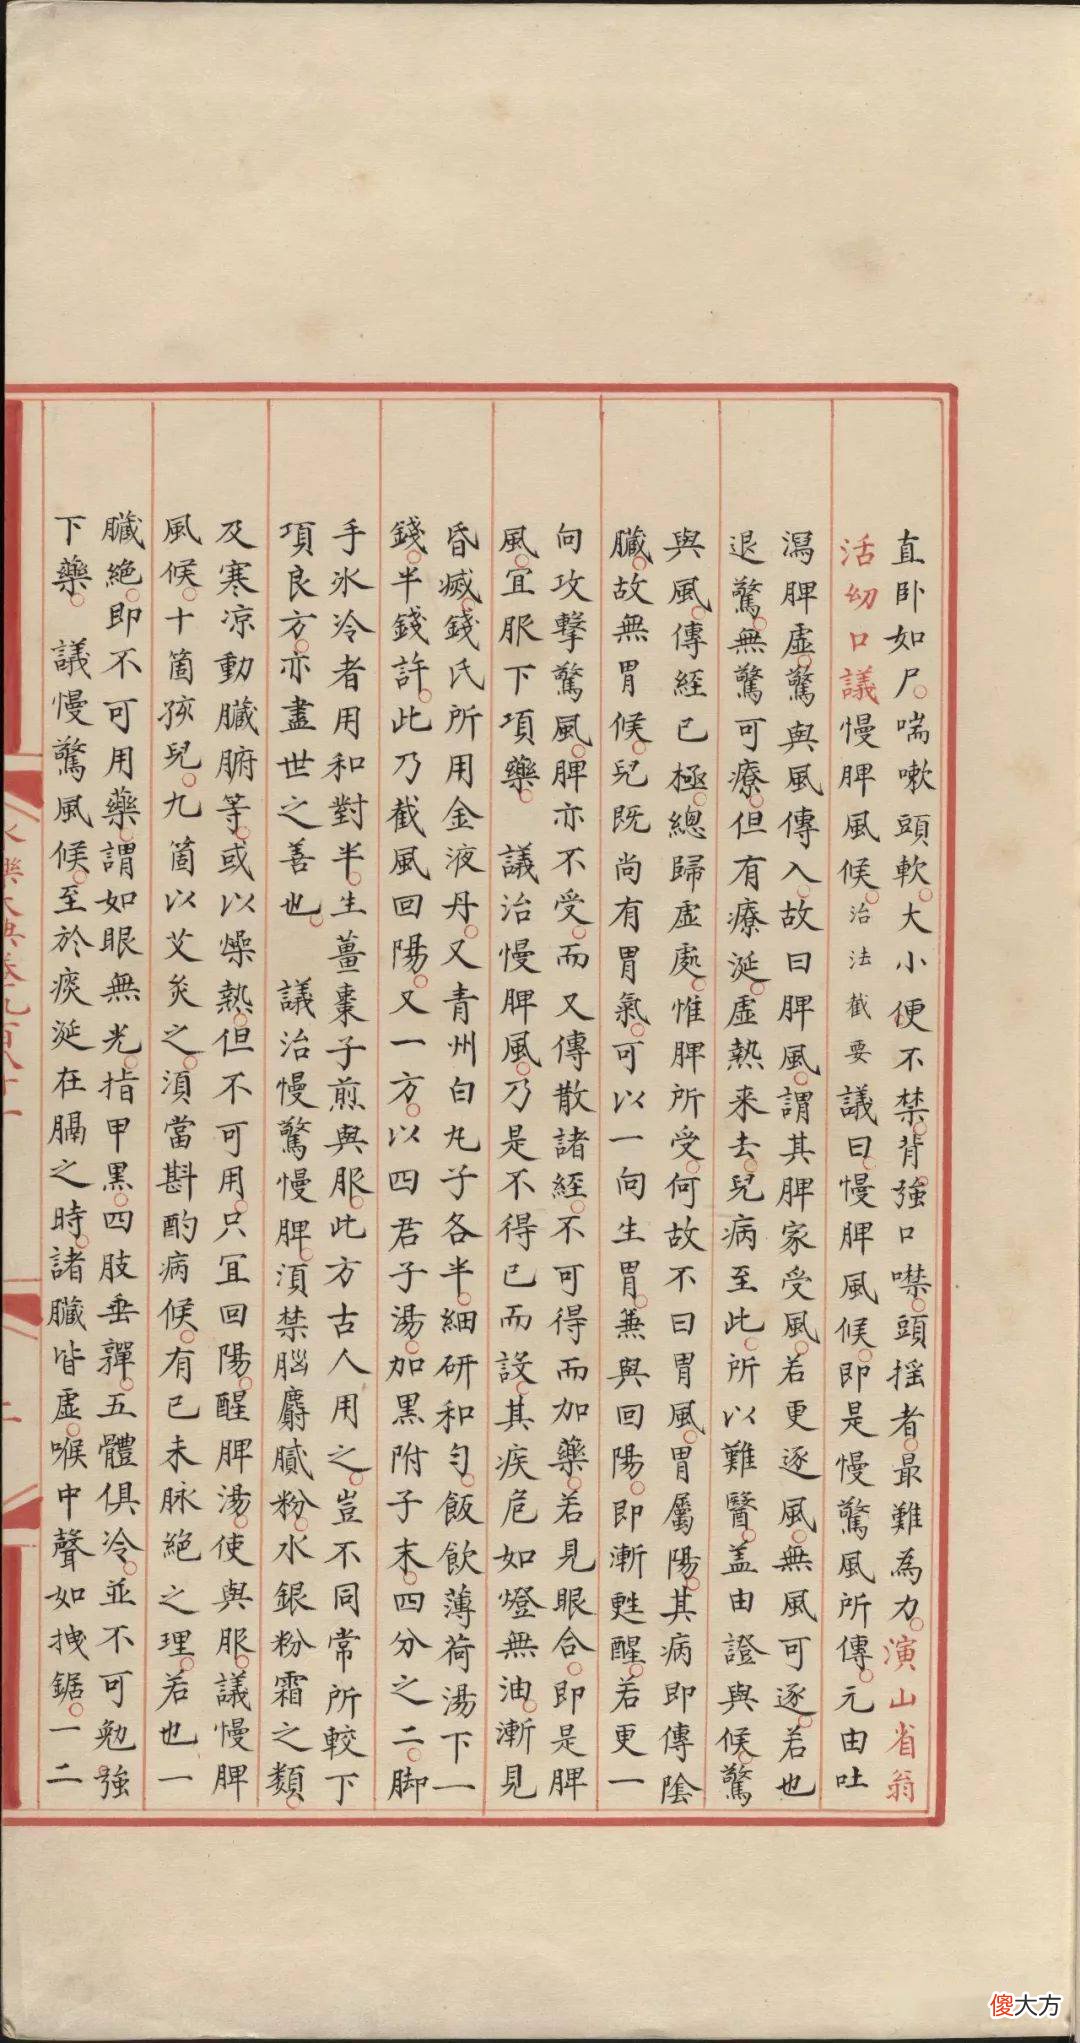 直卧如尸喘嗽頭軟大小便不禁背強口噤頭搖者最難為力演山省翁
活幼口議慢脾風候治法截要議曰慢脾風候即是慢驚風所傳元由吐
瀉脾虛驚與風傳入故曰脾風謂其脾家受風若更逐風無風可逐若也
退驚無驚可療但有療涎虛熱来去兒病至此所以難醫盖由證與候驚
與風傳經已極總歸虛處惟脾所受何故不曰胃風胃屬陽其病即傳陰
臟故無胃候兒既尚有胃氣可以一向生胃兼與回陽即漸甦醒若更一
向攻擊驚風脾亦不受而又傳散諸經不可得而加藥若見眼合即是脾
風宜服下項藥 議治慢脾風乃是不得已而設其疾危如燈無油漸見
昏滅錢氏所用金液丹又青州白丸子各半細研和勻飯飲薄荷湯下一
錢半錢許此乃截風回陽又一方以四君子湯加黑附子末四分之二脚
手氷冷者用和對半生薑棗子煎與服此方古人用之豈不同常所較下
項良方亦盡世之善也 議治慢驚慢脾須禁腦麝膩粉水銀粉霜之類
及寒凉動臟腑等或以燥熱但不可用只宜回陽醒脾湯使與服議慢脾
風候十箇孩兒九箇以艾灸之須當斟酌病候有已未脉絕之理若也一
臟絕即不可用藥謂如眼無光指甲黑四肢垂嚲五體俱冷並不可勉強
下藥 議慢驚風候至於痰涎在膈之時諸臟皆虛喉中聲如拽鋸一二
永樂大典卷九百八十一
二
傻大方